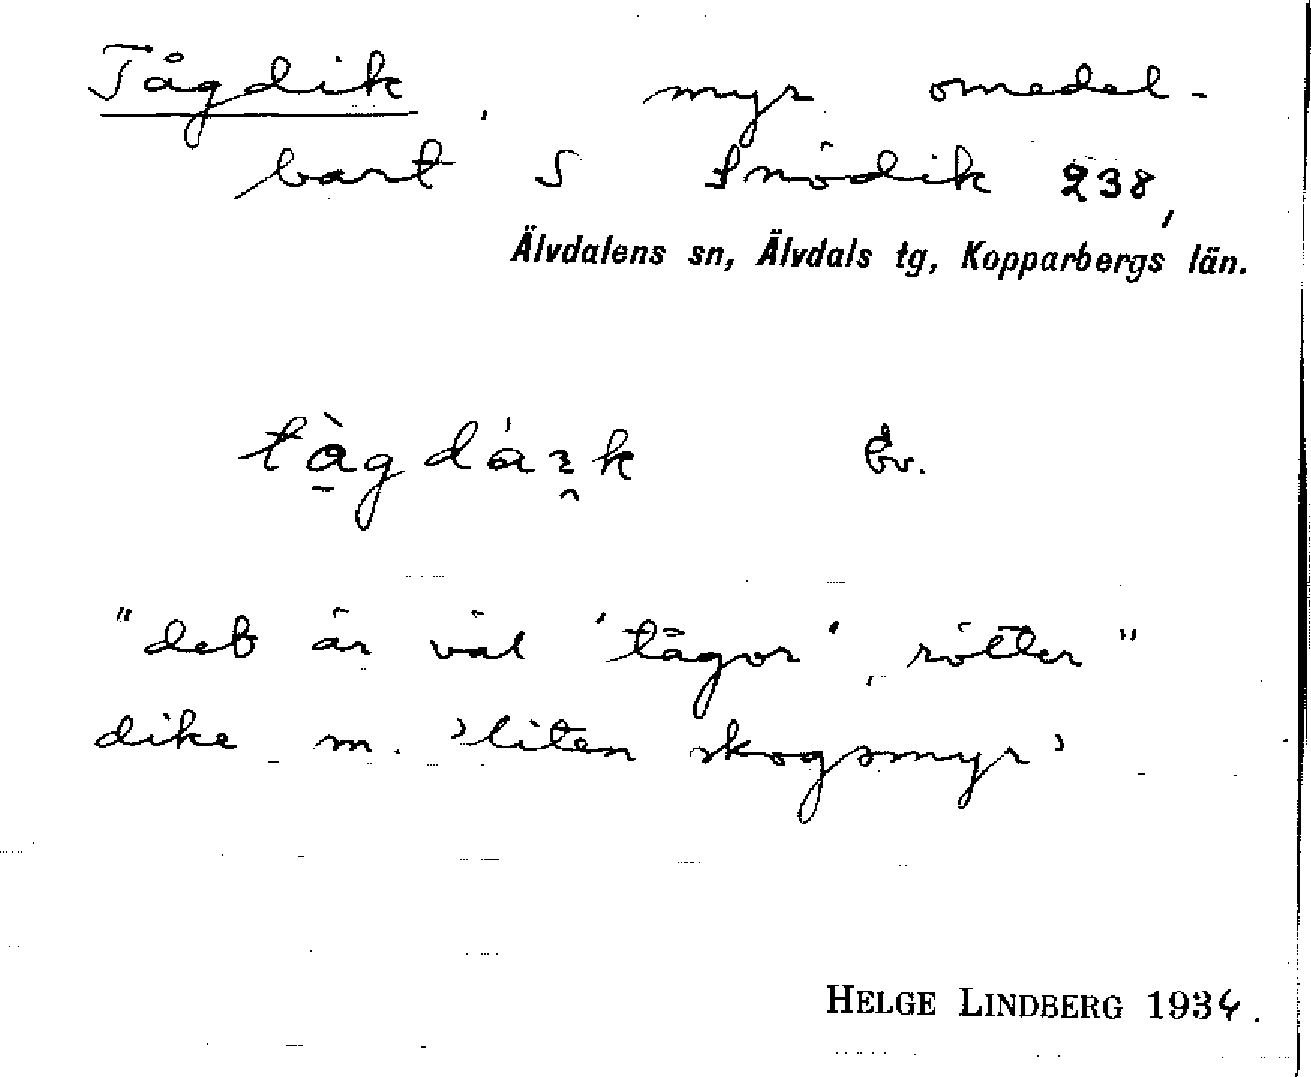 Tågdik, myr omedel-
bart S Snödik 238,
Älvdalens sn, Älvdals tg, Kopparbergs län.
tàgdáık Ev.
"det är väl 'tågor', rötter"
dike m. 'liten skogsmyr'
HELGE LINDBERG 1934.